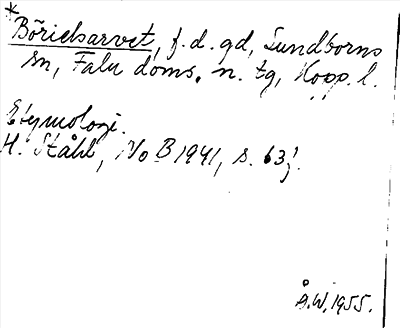 * Börielsarvet, f.d. gd, Sundborns
sn, Falu doms. n. tg, Kopp. l.
Etymologi.
H. Ståhl, NoB 1941, s. 63f.
Å.W. 1955.